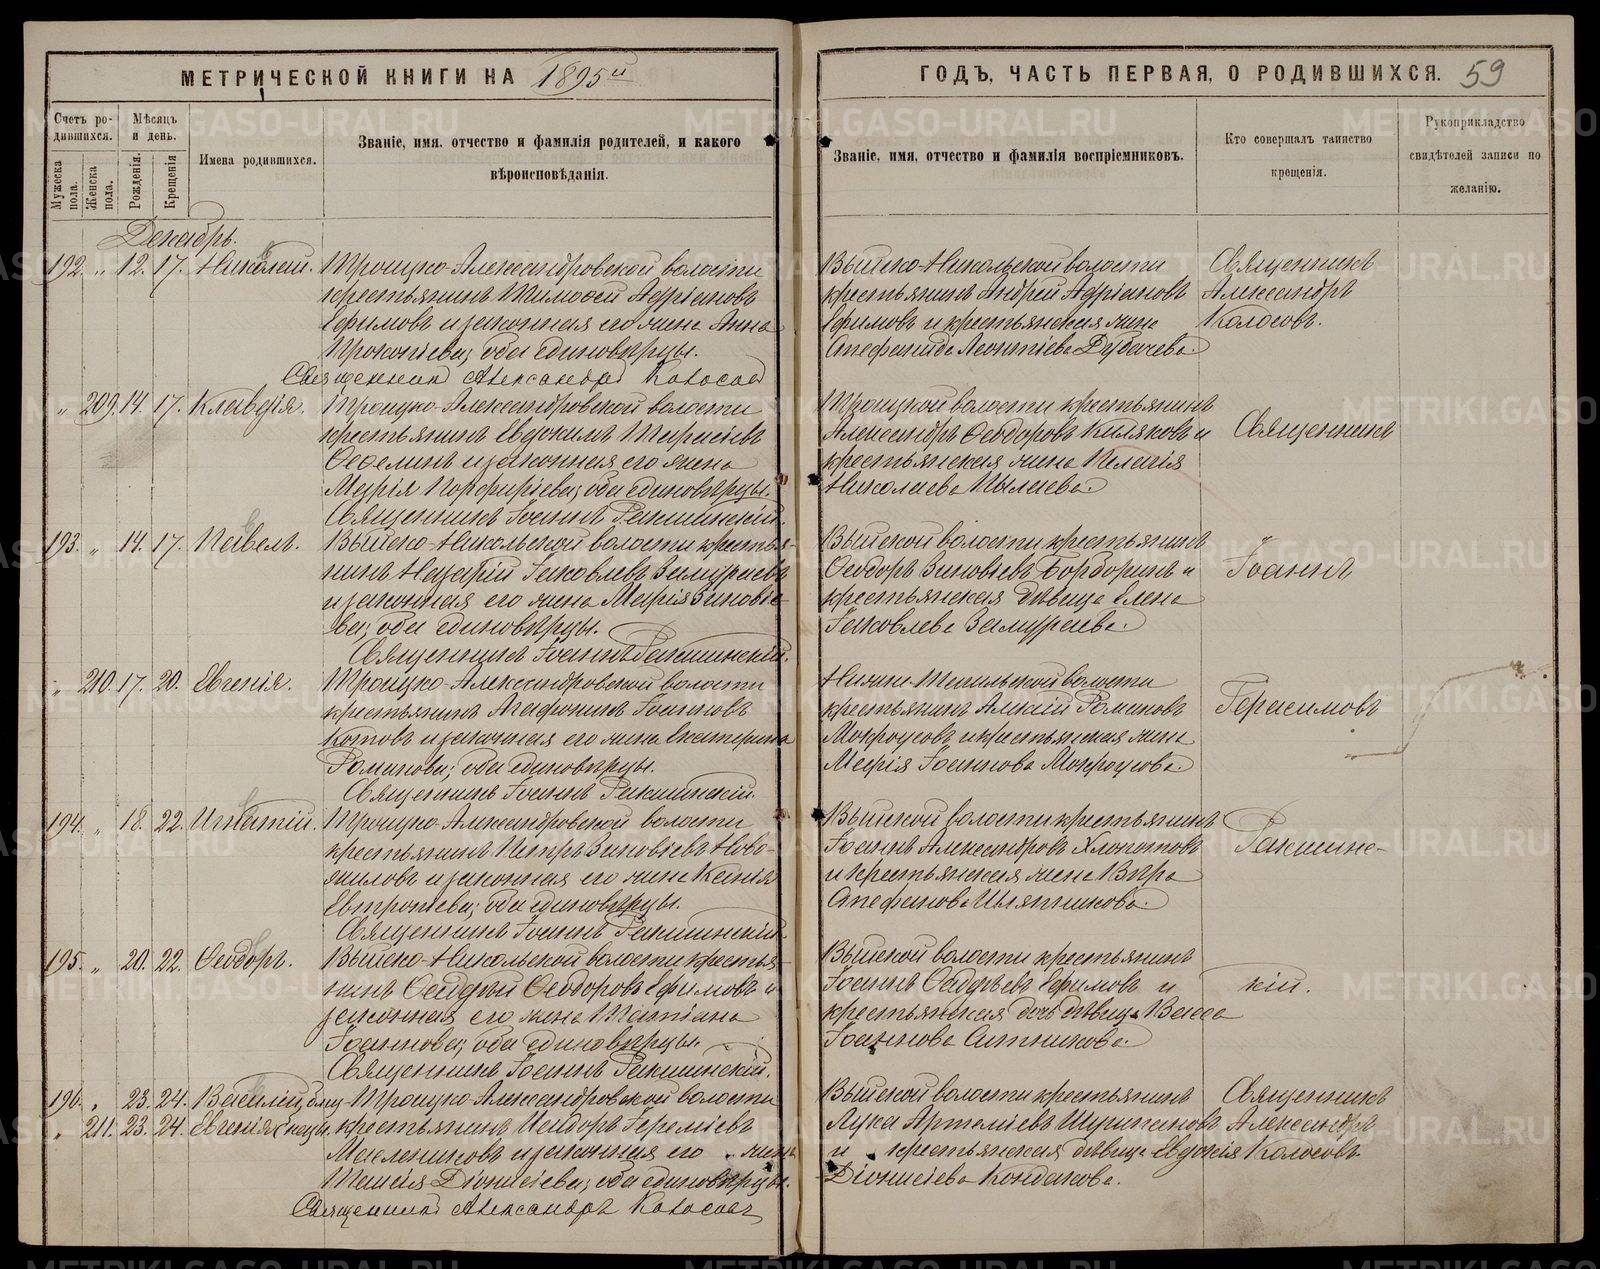 МЕТРИЧЕСКОЙ КНИГИ НА 1895й
ГОДЪ, ЧАСТЬ ПЕРВАЯ, О РОДИВШИХСЯ. 59
Счетъ родившихся.
Мужеска пола.
Женска пола.
Мѣсяцъ и день.
Рожденія.
Крещенія
Имена родившихся.
Званіе, имя, отчество и фамилія родителей, и какого
вѣроисповѣданія.
Званіе, имя, отчество и фамилія воспріемниковъ.
Кто совершалъ таинство
крещенія.
Рукоприкладство
свидѣтелей записи по
желанію.
Декабрь.
192. " 12. 17. Николай. Троицко-Александровской волости
крестьянинъ Тимоѳей Адріановъ
Ефимовъ и законная его жена Анна
Прокопіева; оба единовѣрцы.
Священникъ Александръ Колосовъ
Выйско-Никольской волости
крестьянинъ Андрей Адріановъ
Ефимовъ и крестьянская жена
Стефанида Леонтіева Дубачева.
Священникъ
Александръ
Колосовъ.
" 209. 14. 17. Клавдія. Троицко-Александровской волости
крестьянинъ Евдокимъ Тарасіевъ
и законная его жена
Марія Порфиріева; оба единовѣрцы.
Священникъ Іоаннъ Ракшинскій.
Троицкой волости крестьянинъ
Александръ Ѳеодоровъ и
крестьянская жена Пелагія
Николаева Пылаева.
Священникъ
193. " 14. 17. Павелъ. Выйско-Никольской волости крестья-
нинъ Назарій Іаковлевъ Замураевъ
и законная его жена Марія Зиновіе-
ва; оба единовѣрцы.
Священникъ Іоаннъ Ракшинскій.
Выйской волости крестьянинъ
Ѳеодоръ Зиновіевъ Борборинъ и
крестьянская дѣвица Елена
Іаковлева Замураева.
Іоаннъ
" 210. 17. 20. Евгенія. Троицко-Александровской волости
крестьянинъ Агафоникъ Іоанновъ
Котовъ и законная его жена Екатерина
Романова; оба единовѣрцы.
Священникъ Іоаннъ Ракшинскій.
Нижне-Тагильской волости
крестьянинъ Алексій Романовъ
Мокроусовъ и крестьянская жена
Марія Іоаннова Мокроусова.
Герасимовъ
194. " 18. 22. Игнатій. Троицко-Александровской волости
крестьянинъ Петръ Зиновіевъ Ново-
жиловъ и законная его жена Ксенія
Евтропіева; оба единовѣрцы.
Священникъ Іоаннъ Ракшинскій.
Выйской волости крестьянинъ
Іоаннъ Александровъ Хлопотовъ
и крестьянская жена Вѣра
Стефанова Шляпникова.
Ракшинс-
195. " 20. 22. Ѳеодоръ. Выйско-Никольской волости крестья-
нинъ Ѳеодоровъ Ефимовъ и
законная его жена Татіана
Іоаннова; оба единовѣрцы.
Священникъ Іоаннъ Ракшинскій.
Выйской волости крестьянинъ
Іоаннъ Ефимовъ и
крестьянская дочь дѣвица Васса
Іоаннова Ситникова.
кій.
196. " 23. 24. Василій Троицко-Александровской волости
" 211. 23. 24. Евгенія крестьянинъ Исидоръ Іереміевъ
Масленниковъ и законная его жена
Таисія Діонисіева; оба единовѣрцы.
Священникъ Александръ Колосовъ
Выйской волости крестьянинъ
Лука Артеміевъ
и крестьянская дѣвица Евдокія
Діонисіева Кондакова.
Священникъ
Александръ
Колосовъ.
METRIKI.GASO-URAL.RU